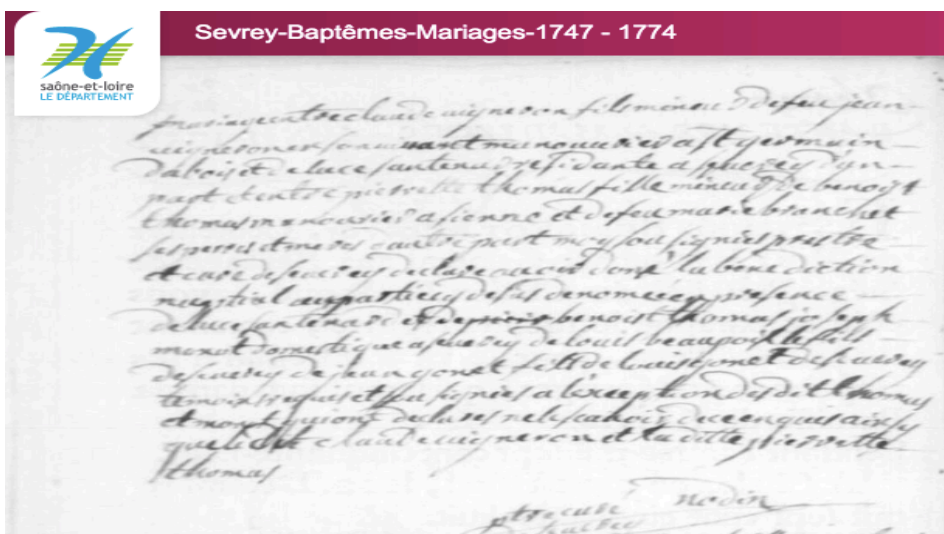 Sevrey-Baptêmes-Mariages-1747 - 1774
saône-et-loire
LE DÉPARTEMENT
entre claude vigneron fils mineur defeu jean
vigneron vivant manouvrier a st germain
dubois et de luce santenard residante a sevrey d'un
part et entre pierrette thomas fille mineur de benoist
thomas manouvrier a sienne et defeu marie branchet
ses peres et meres d'autre part moy sousignies prestre
et cure de sevrey declare avoir donné la benediction
nuptial aux parties cy desus denomeé en presence
de luce santenard et benoist thomas joseph
monot domestique a sevrey de louis beaupoil le fils
de sevrey de jean gonet fils de louis gonet de sevrey
temoins requis et sousignies a l'exception des dit thomas
et monot qui ont declares ne le scavoir de ce enquis ainsy
que ledit claude vigneron et la ditte pierrette
thomas
nodin
ptre curé